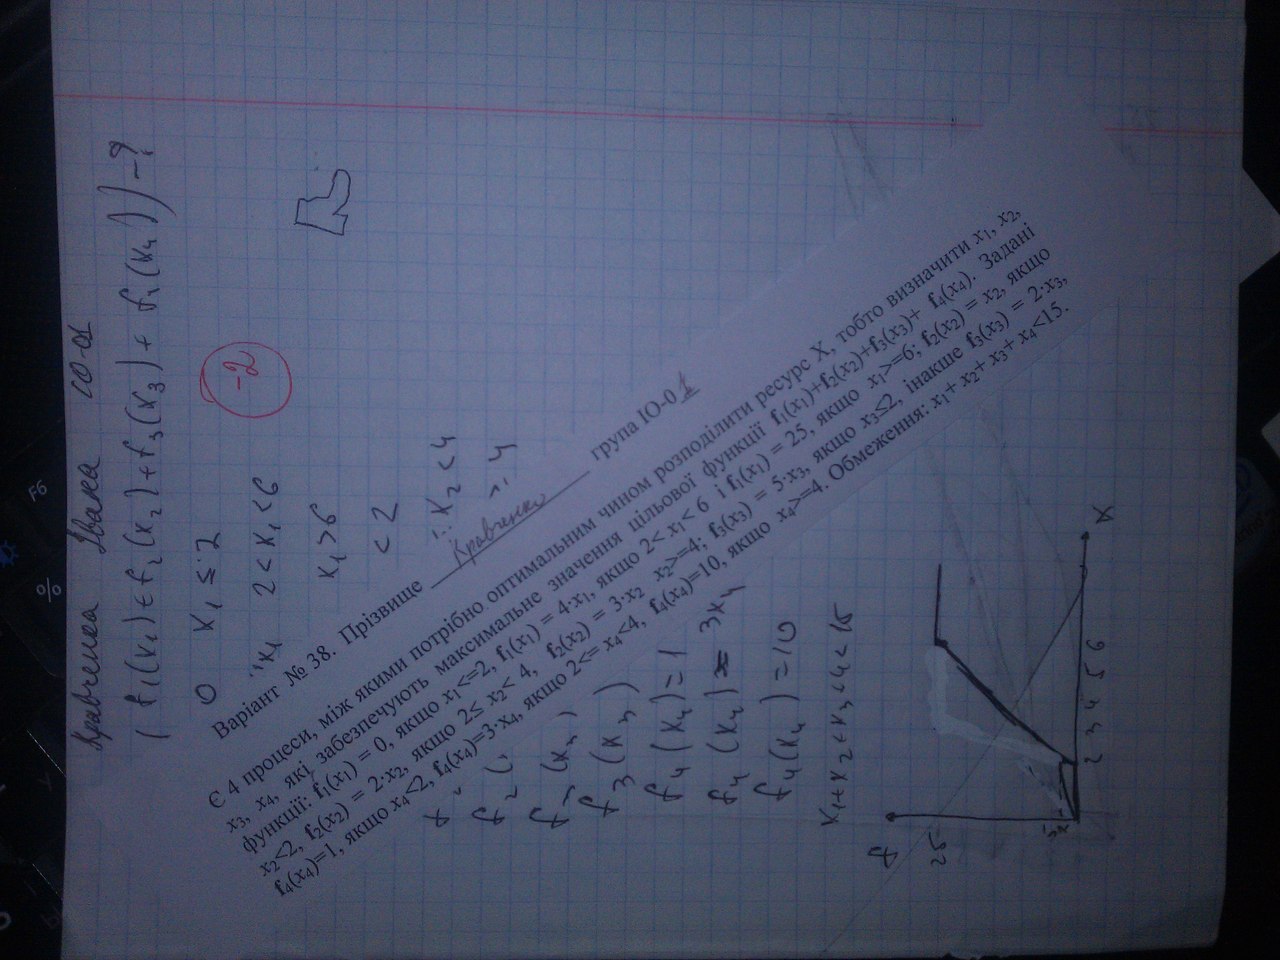 Кравченка Івана ІО-01
(f₁(x₁) + f₂(x₂) + f₃(x₃) + f₄(x₄)) -?
0 x₁ ≤ 2
-2
4x₁ 2 < x₁ < 6
x₁ > 6
< 2
x₂ < 4
4
Варіант № 38. Прізвище Кравченко група ІО-01
Є 4 процеси, між якими потрібно оптимальним чином розподілити ресурс X, тобто визначити x₁, x₂,
x₃, x₄, які забезпечують максимальне значення цільової функції f₁(x₁)+f₂(x₂)+f₃(x₃)+ f₄(x₄). Задані
функції: f₁(x₁) = 0, якщо x₁<=2, f₁(x₁) = 4·x₁, якщо 2< x₁< 6 і f₁(x₁) = 25, якщо x₁>=6; f₂(x₂) = x₂, якщо
x₂<2, f₂(x₂) = 2·x₂, якщо 2≤ x₂< 4, f₂(x₂) = 3·x₂ x₂>=4; f₃(x₃) = 5·x₃, якщо x₃≤2, інакше f₃(x₃) = 2·x₃,
f₄(x₄)=1, якщо x₄<2, f₄(x₄)=3·x₄, якщо 2<= x₄<4, f₄(x₄)=10, якщо x₄>=4. Обмеження: x₁+ x₂+ x₃+ x₄<15.
f₂(
f₃(x₃)
f₃(x₃)
f₄(x₄) = 1
f₄(x₄) = 3x₄
f₄(x₄) = 10
x₁ + x₂ + x₃ + x₄ < 15
f
25
2 3 4 5 6 X